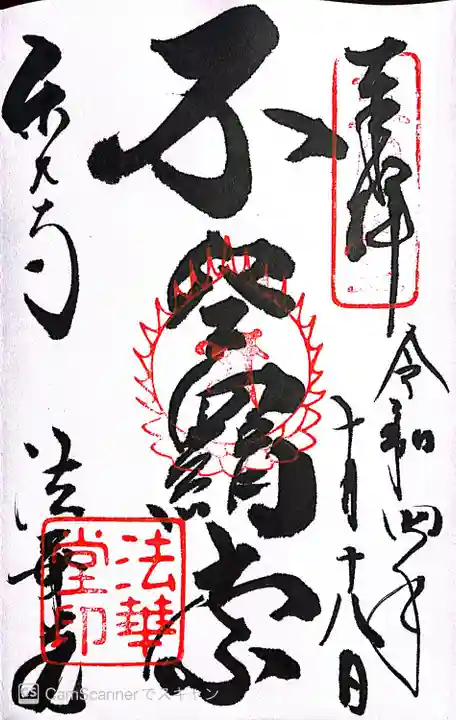 奉拝
令和四年
十月十八日
不空羂索
東大寺
法華堂
法華
堂印
CamScannerでスキャン